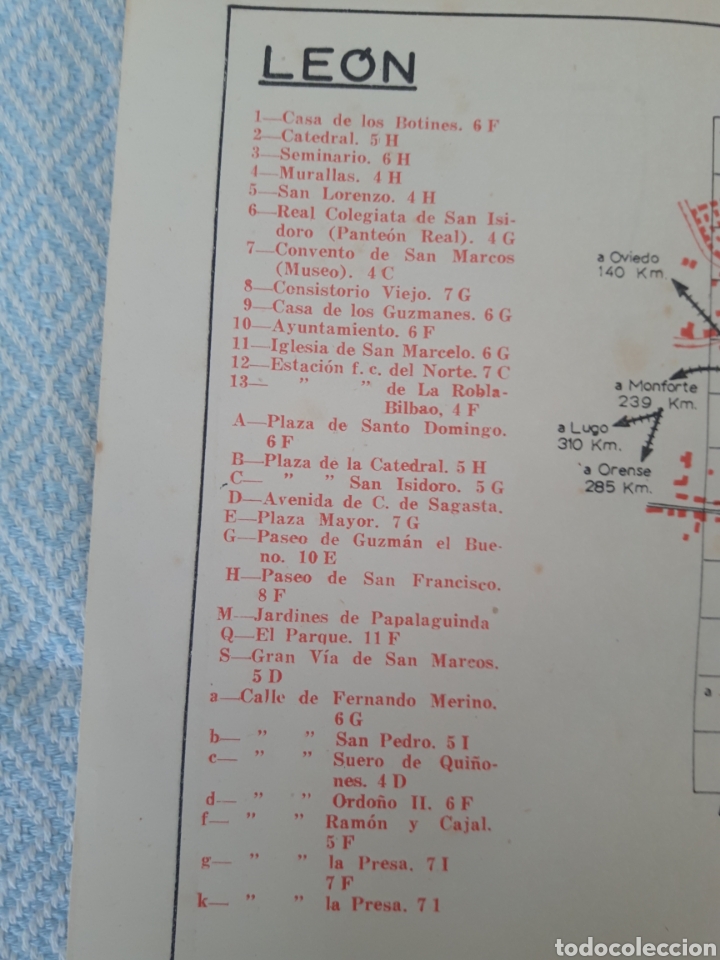 LEÓN
1—Casa de los Botines. 6 F
2—Catedral. 5 H
3—Seminario. 6 H
4—Murallas. 4 H
5—San Lorenzo. 4 H
6—Real Colegiata de San Isi-
doro (Panteón Real). 4 G
7—Convento de San Marcos
(Museo). 4 C
8—Consistorio Viejo. 7 G
9—Casa de los Guzmanes. 6 G
10—Ayuntamiento. 6 F
11—Iglesia de San Marcelo. 6 G
12—Estación f. c. del Norte. 7 C
13— ” ” de La Robla-
Bilbao, 4 F
A—Plaza de Santo Domingo.
6 F
B—Plaza de la Catedral. 5 H
C— ” ” San Isidoro. 5 G
D—Avenida de C. de Sagasta.
E—Plaza Mayor. 7 G
G—Paseo de Guzmán el Bue-
no. 10 E
H—Paseo de San Francisco.
8 F
M—Jardines de Papalaguinda
Q—El Parque. 11 F
S—Gran Vía de San Marcos.
5 D
a—Calle de Fernando Merino.
6 G
b— ” ” San Pedro. 5 I
c— ” ” Suero de Quiño-
nes. 4 D
d— ” ” Ordoño II. 6 F
f— ” ” Ramón y Cajal.
5 F
g— ” ” la Presa. 7 I
7 F
k— ” ” la Presa. 7 1
a Oviedo
140 Km.
a Monforte
239 Km.
a Lugo
310 Km.
a Orense
285 Km.
a
todocoleccion